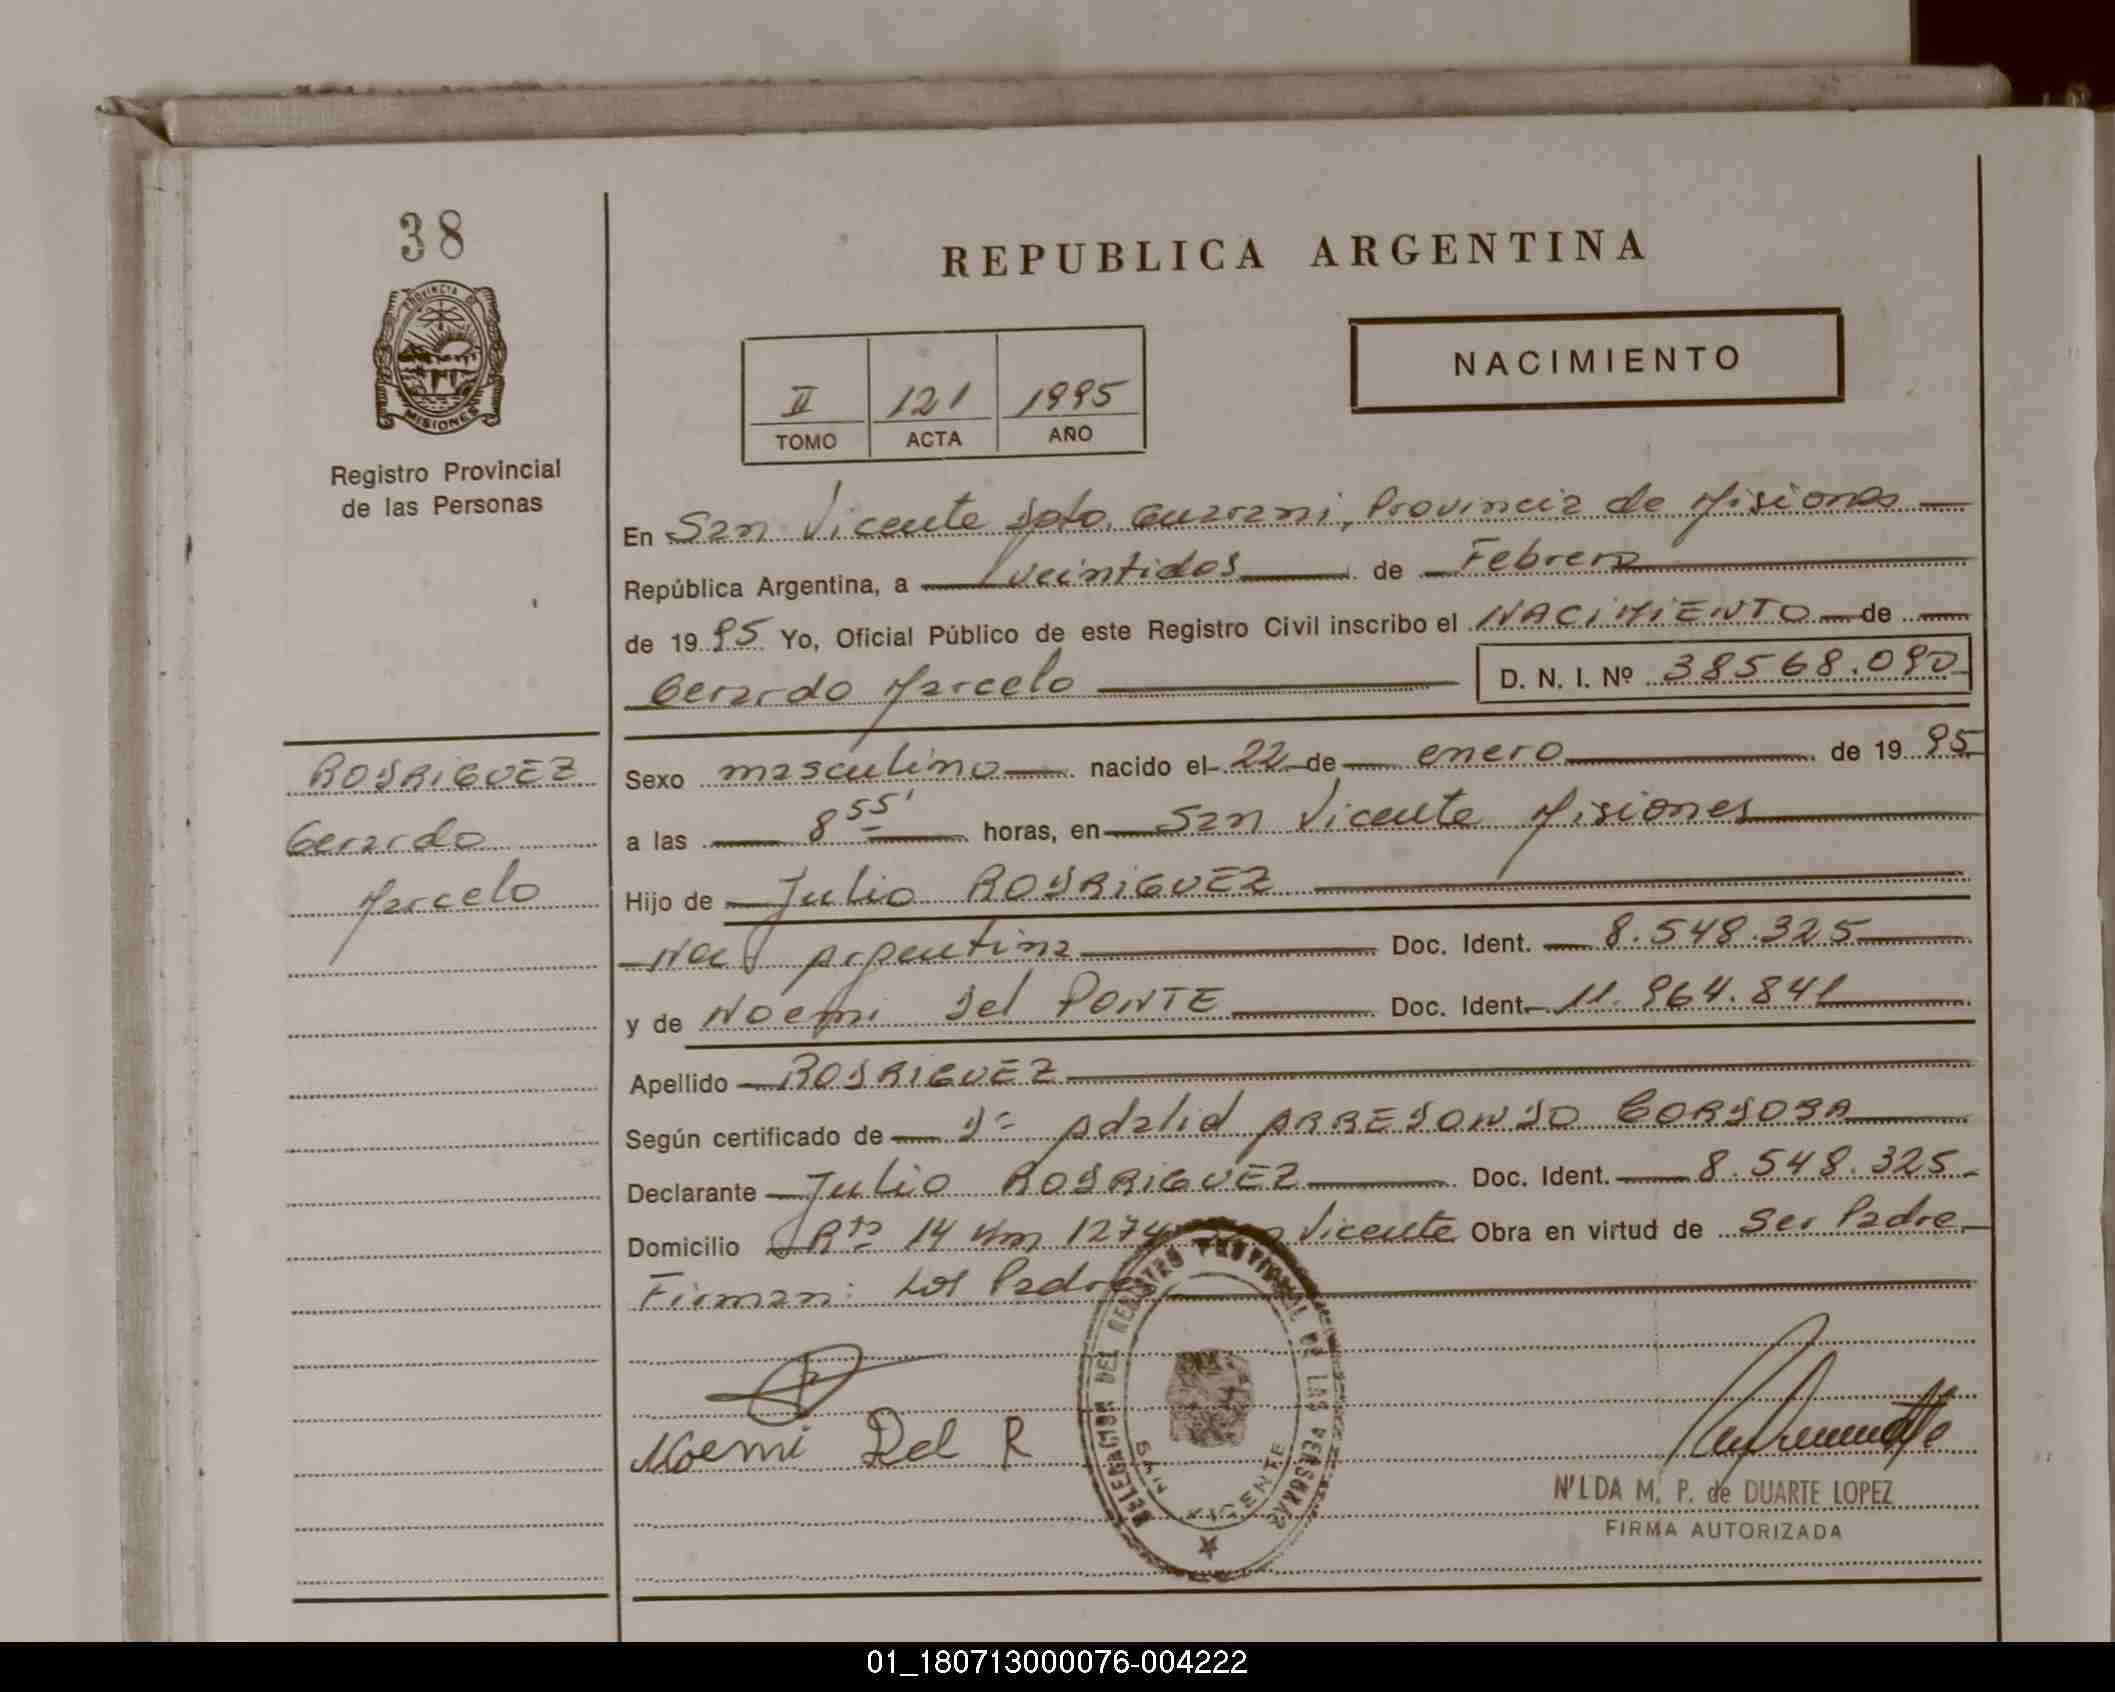 38
PROVINCIA DE
MISIONES
Registro Provincial
de las Personas
REPUBLICA ARGENTINA
NACIMIENTO
II 121 1995
TOMO ACTA AÑO
En San Vicente Dpto. Guarani, Provincia de Misiones
República Argentina, a veintidos de Febrero
de 1995 Yo, Oficial Público de este Registro Civil inscribo el NACIMIENTO de
Gerardo Marcelo D. N. I. Nº 38568.090
RODRIGUEZ
Gerardo
Marcelo
Sexo masculino nacido el 22 de enero de 1995
a las 8 55' horas, en San Vicente Misiones
Hijo de Julio RODRIGUEZ
Nac Argentina Doc. Ident. 8.548.325
y de Noemi del PONTE Doc. Ident. 11.964.841
Apellido RODRIGUEZ
Según certificado de Dr Adalid ARREDONDO CORDOBA
Declarante Julio RODRIGUEZ Doc. Ident. 8.548.325
Domicilio Rta 14 Km 1274 San Vicente Obra en virtud de Ser Padre
Firman: Los Padres
Noemi Del R
DELEGACION DEL REGISTRO PROVINCIAL DE LAS PERSONAS
SAN VICENTE
NILDA M. P. de DUARTE LOPEZ
FIRMA AUTORIZADA
01_180713000076-004222